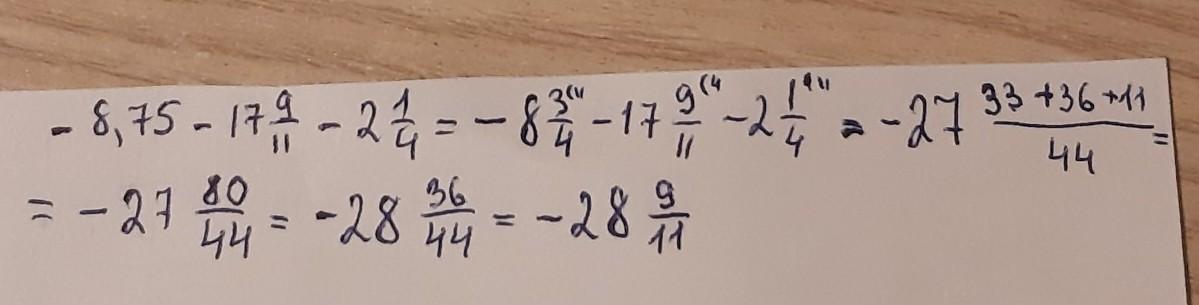 - 8,75 - 17 9/11 - 2 1/4 = - 8 3/4 (11 - 17 9/11 (4 - 2 1/4 (11 = - 27 (33 + 36 + 11)/44 =
= - 27 80/44 = - 28 36/44 = - 28 9/11